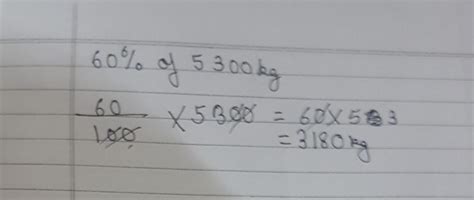 60% of 5300kg
60/100 × 5300 = 60×53
= 3180kg